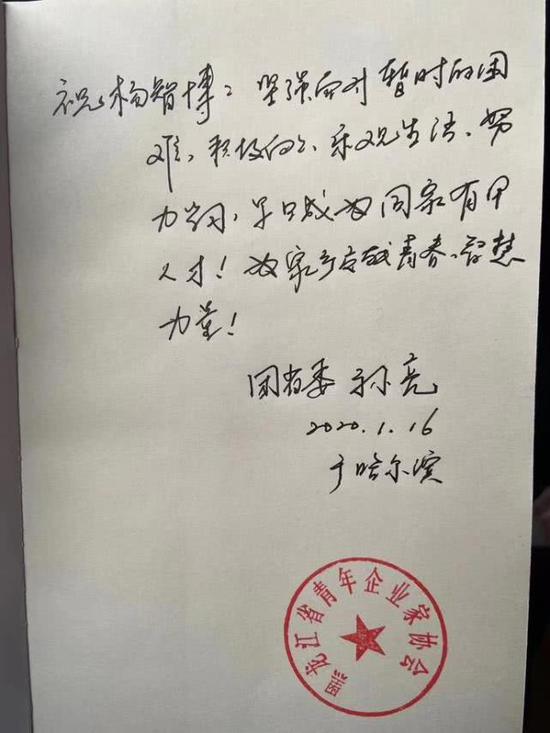 祝杨智博：坚强面对暂时的困
难，积极向上、乐观生活、努
力学习，早日成为国家有用
人才！为家乡贡献青春、智慧
力量！
团省委 孙亮
2020.1.16
于哈尔滨
黑龙江省青年企业家协会